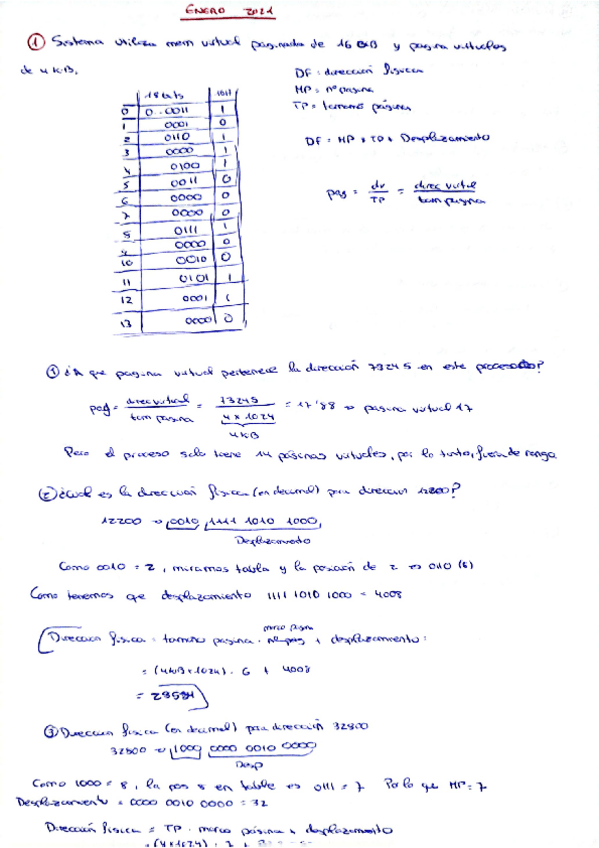 ENERO 2021
① Sistema utiliza mem virtual paginada de 16 GB y pagina virtuales
de 4 KiB.
DF: dirección física
MP = nº pagina
TP = tamaño página
DF = MP * TP + Desplazamiento
pag = dv / TP = direc virtual / tam pagina
18 bits 1bit
0 0..0011 1
1 0001 0
2 0110 1
3 0000 1
4 0100 1
5 0011 0
6 0000 0
7 0000 0
8 0111 1
9 0000 0
10 0010 0
11 0101 1
12 0001 1
13 0000 0
① ¿A que pagina virtual pertenece la dirección 73245 en este proceso?
pag = direc virtual / tam pagina = 73245 / 4 x 1024 = 17'88 => pagina virtual 17
4KB
Pero el proceso solo tiene 14 páginas virtuales, por lo tanto, fuera de rango
② ¿Cual es la dirección física (en decimal) para direccion 12200?
12200 => 0010 1111 1010 1000
Desplazamiento
Como 0010 = 2, miramos tabla y la posición de 2 es 0110 (6)
Como tenemos que desplazamiento 1111 1010 1000 = 4008
marco pagina
Direccion fisica = tamaño pagina · nº pag + desplazamiento:
= (4KB x 1024) · 6 + 4008
= 28584
③ Direccion fisica (en decimal) para dirección 32800
32800 => 1000 0000 0010 0000
Desp
Como 1000 = 8, la pos 8 en tabla es 0111 = 7 Por lo que MP = 7
Desplazamiento = 0000 0010 0000 = 32
Dirección física = TP · marco página + desplazamiento